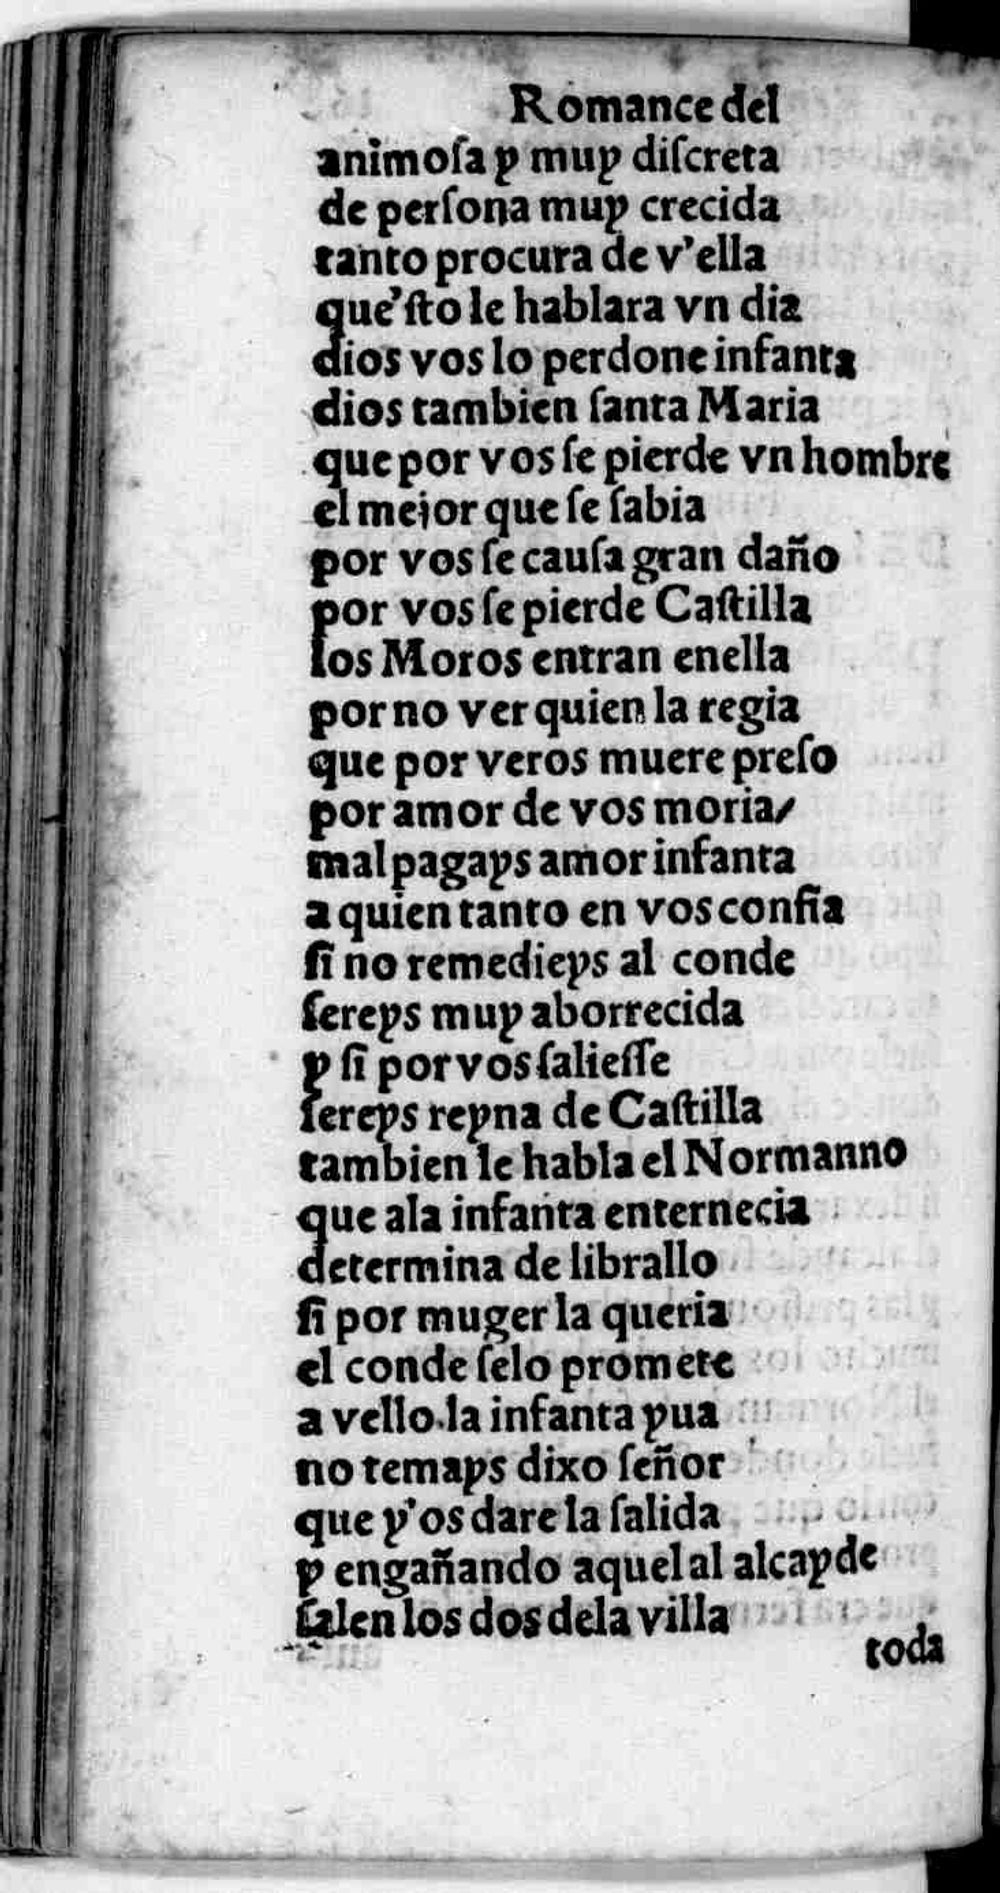 Romance del
animoſa y muy diſcreta
de perſona muy crecida
tanto procura de v'ella
que'ſto le hablara vn dia
dios vos lo perdone infanta
dios tambien ſanta Maria
que por vos ſe pierde vn hombre
el meior que ſe ſabia
por vos ſe cauſa gran daño
por vos ſe pierde Caſtilla
los Moros entran enella
por no ver quien la regia
que por veros muere preſo
por amor de vos moria/
mal pagays amor infanta
a quien tanto en vos confia
ſi no remedieys al conde
ſereys muy aborrecida
y ſi por vos ſalieſſe
ſereys reyna de Caſtilla
tambien le habla el Normanno
que ala infanta enternecia
determina de librallo
ſi por muger la queria
el conde ſelo promete
a vello la infanta yua
no temays dixo ſeñor
que y'os dare la ſalida
y engañando aquel al alcayde
ſalen los dos dela villa
toda